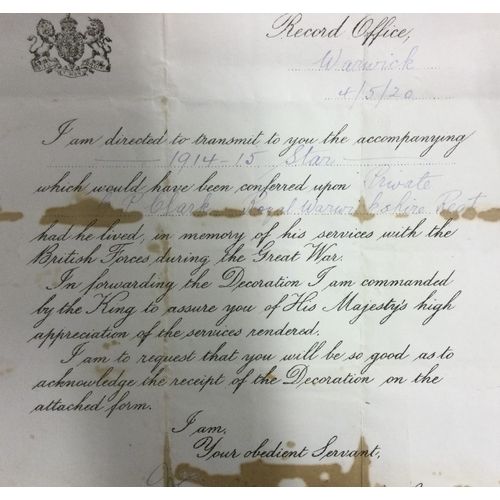 Record Office,
Warwick
4/5/20
I am directed to transmit to you the accompanying
1914-15 Star
which would have been conferred upon Private
P. Clark Royal Warwickshire Regt
had he lived, in memory of his services with the
British Forces during the Great War.
In forwarding the Decoration I am commanded
by the King to assure you of His Majesty's high
appreciation of the services rendered.
I am to request that you will be so good as to
acknowledge the receipt of the Decoration on the
attached form.
I am,
Your obedient Servant,